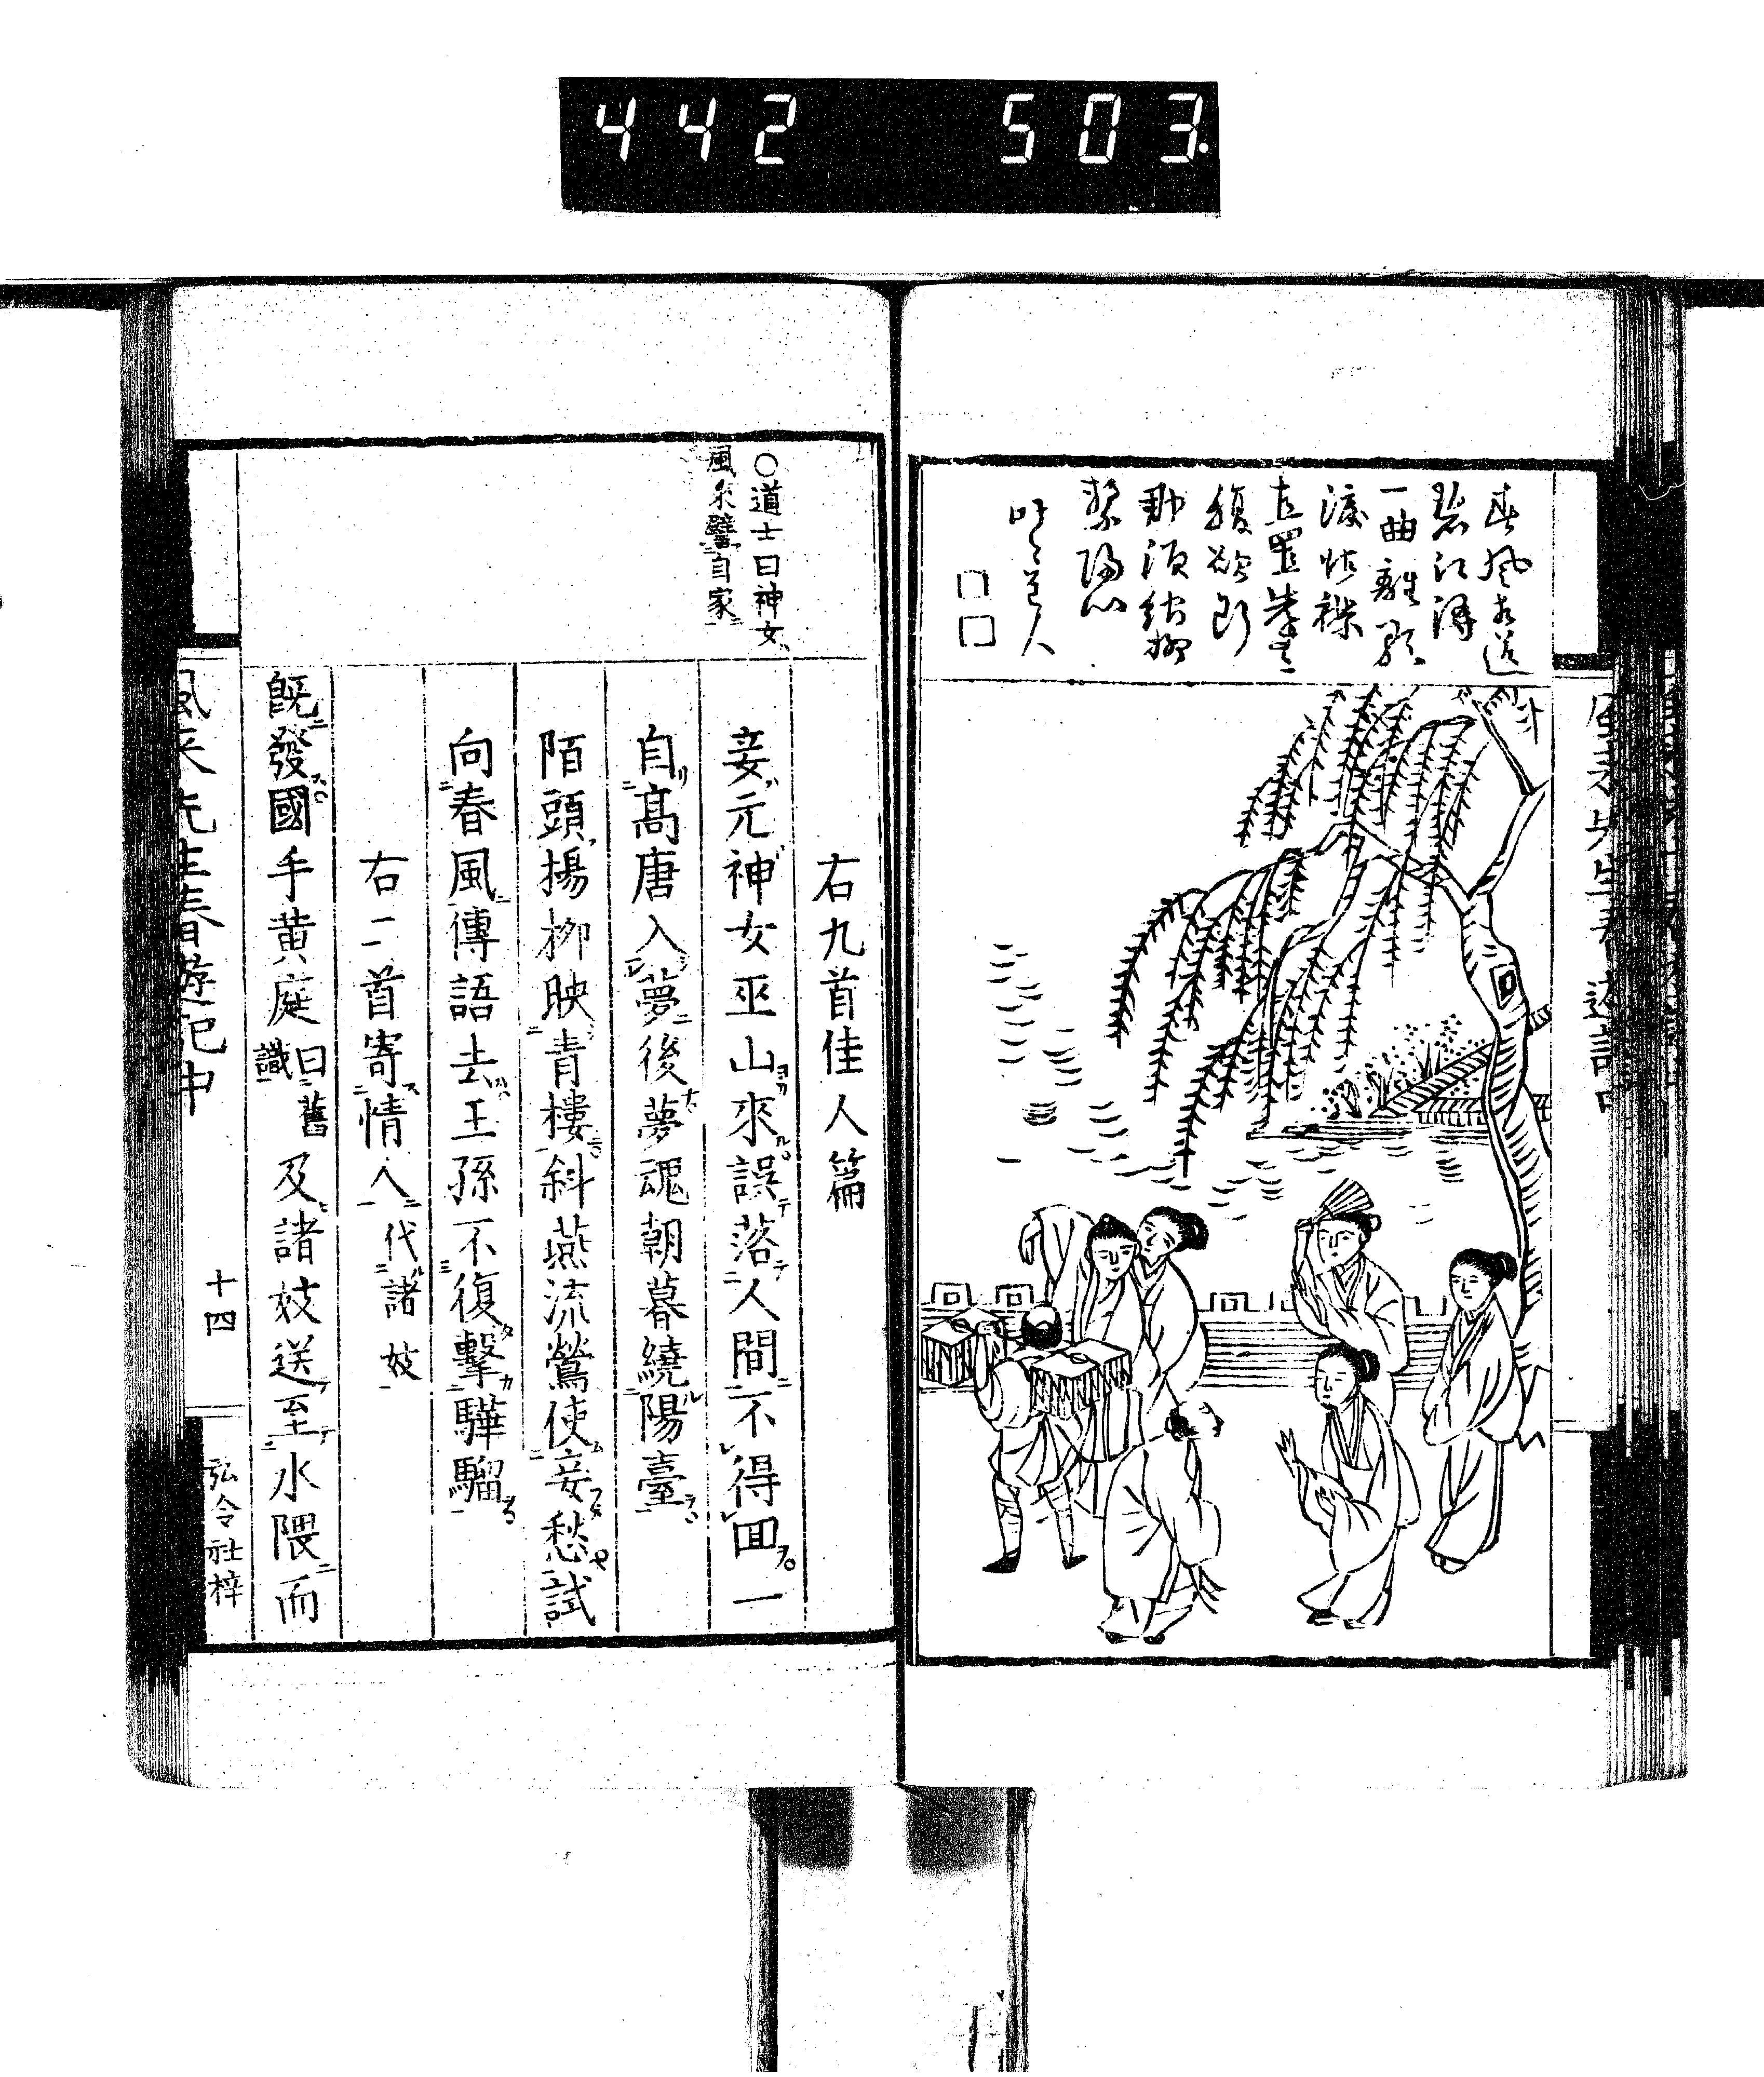 442 503.
春風相送
碧江潯
一曲離歌
淚怗襟
直置
勸須結柳
繫陽
道人
〇道士曰神女
風來譬自家
右九首佳人篇
妾元神女巫山來誤落人間不得回一
自髙唐入夢後夢魂朝暮繞陽臺
陌頭揚柳映青樓斜燕流鶯使妾愁試
向春風傳語去王孫不復繫驊騮
右二首寄情人代諸妓
既發國手黄庭曰舊識及諸妓送至水隈而
風來先生春遊記中
十四
弘令社梓